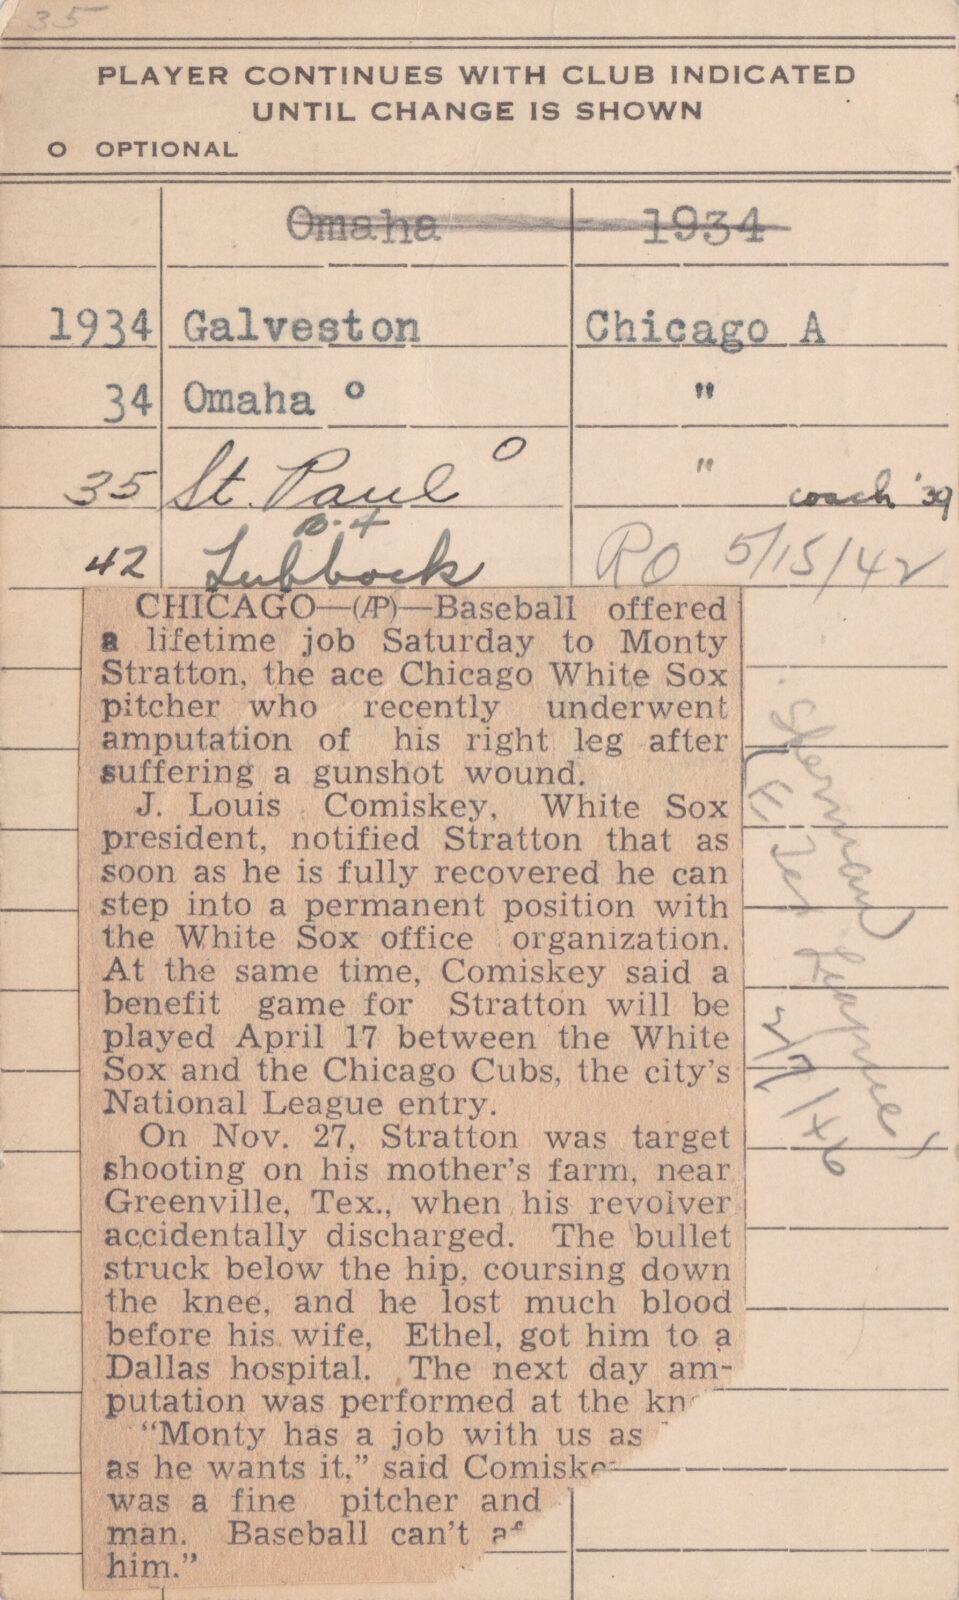 35
PLAYER CONTINUES WITH CLUB INDICATED
UNTIL CHANGE IS SHOWN
O OPTIONAL
Omaha 1934
1934 Galveston Chicago A
34 Omaha o "
35 St. Paul O " coach '39
42 Lubbock RO 5/15/42
CHICAGO—(AP)—Baseball offered
a lifetime job Saturday to Monty
Stratton, the ace Chicago White Sox
pitcher who recently underwent
amputation of his right leg after
suffering a gunshot wound.
J. Louis Comiskey, White Sox
president, notified Stratton that as
soon as he is fully recovered he can
step into a permanent position with
the White Sox office organization.
At the same time, Comiskey said a
benefit game for Stratton will be
played April 17 between the White
Sox and the Chicago Cubs, the city's
National League entry.
On Nov. 27, Stratton was target
shooting on his mother's farm, near
Greenville, Tex., when his revolver
accidentally discharged. The bullet
struck below the hip, coursing down
the knee, and he lost much blood
before his wife, Ethel, got him to a
Dallas hospital. The next day am-
putation was performed at the
"Monty has a job with us as
as he wants it," said
was a fine pitcher and
man. Baseball can't
him."
Sherman
(E. Tex League)
2/7/46